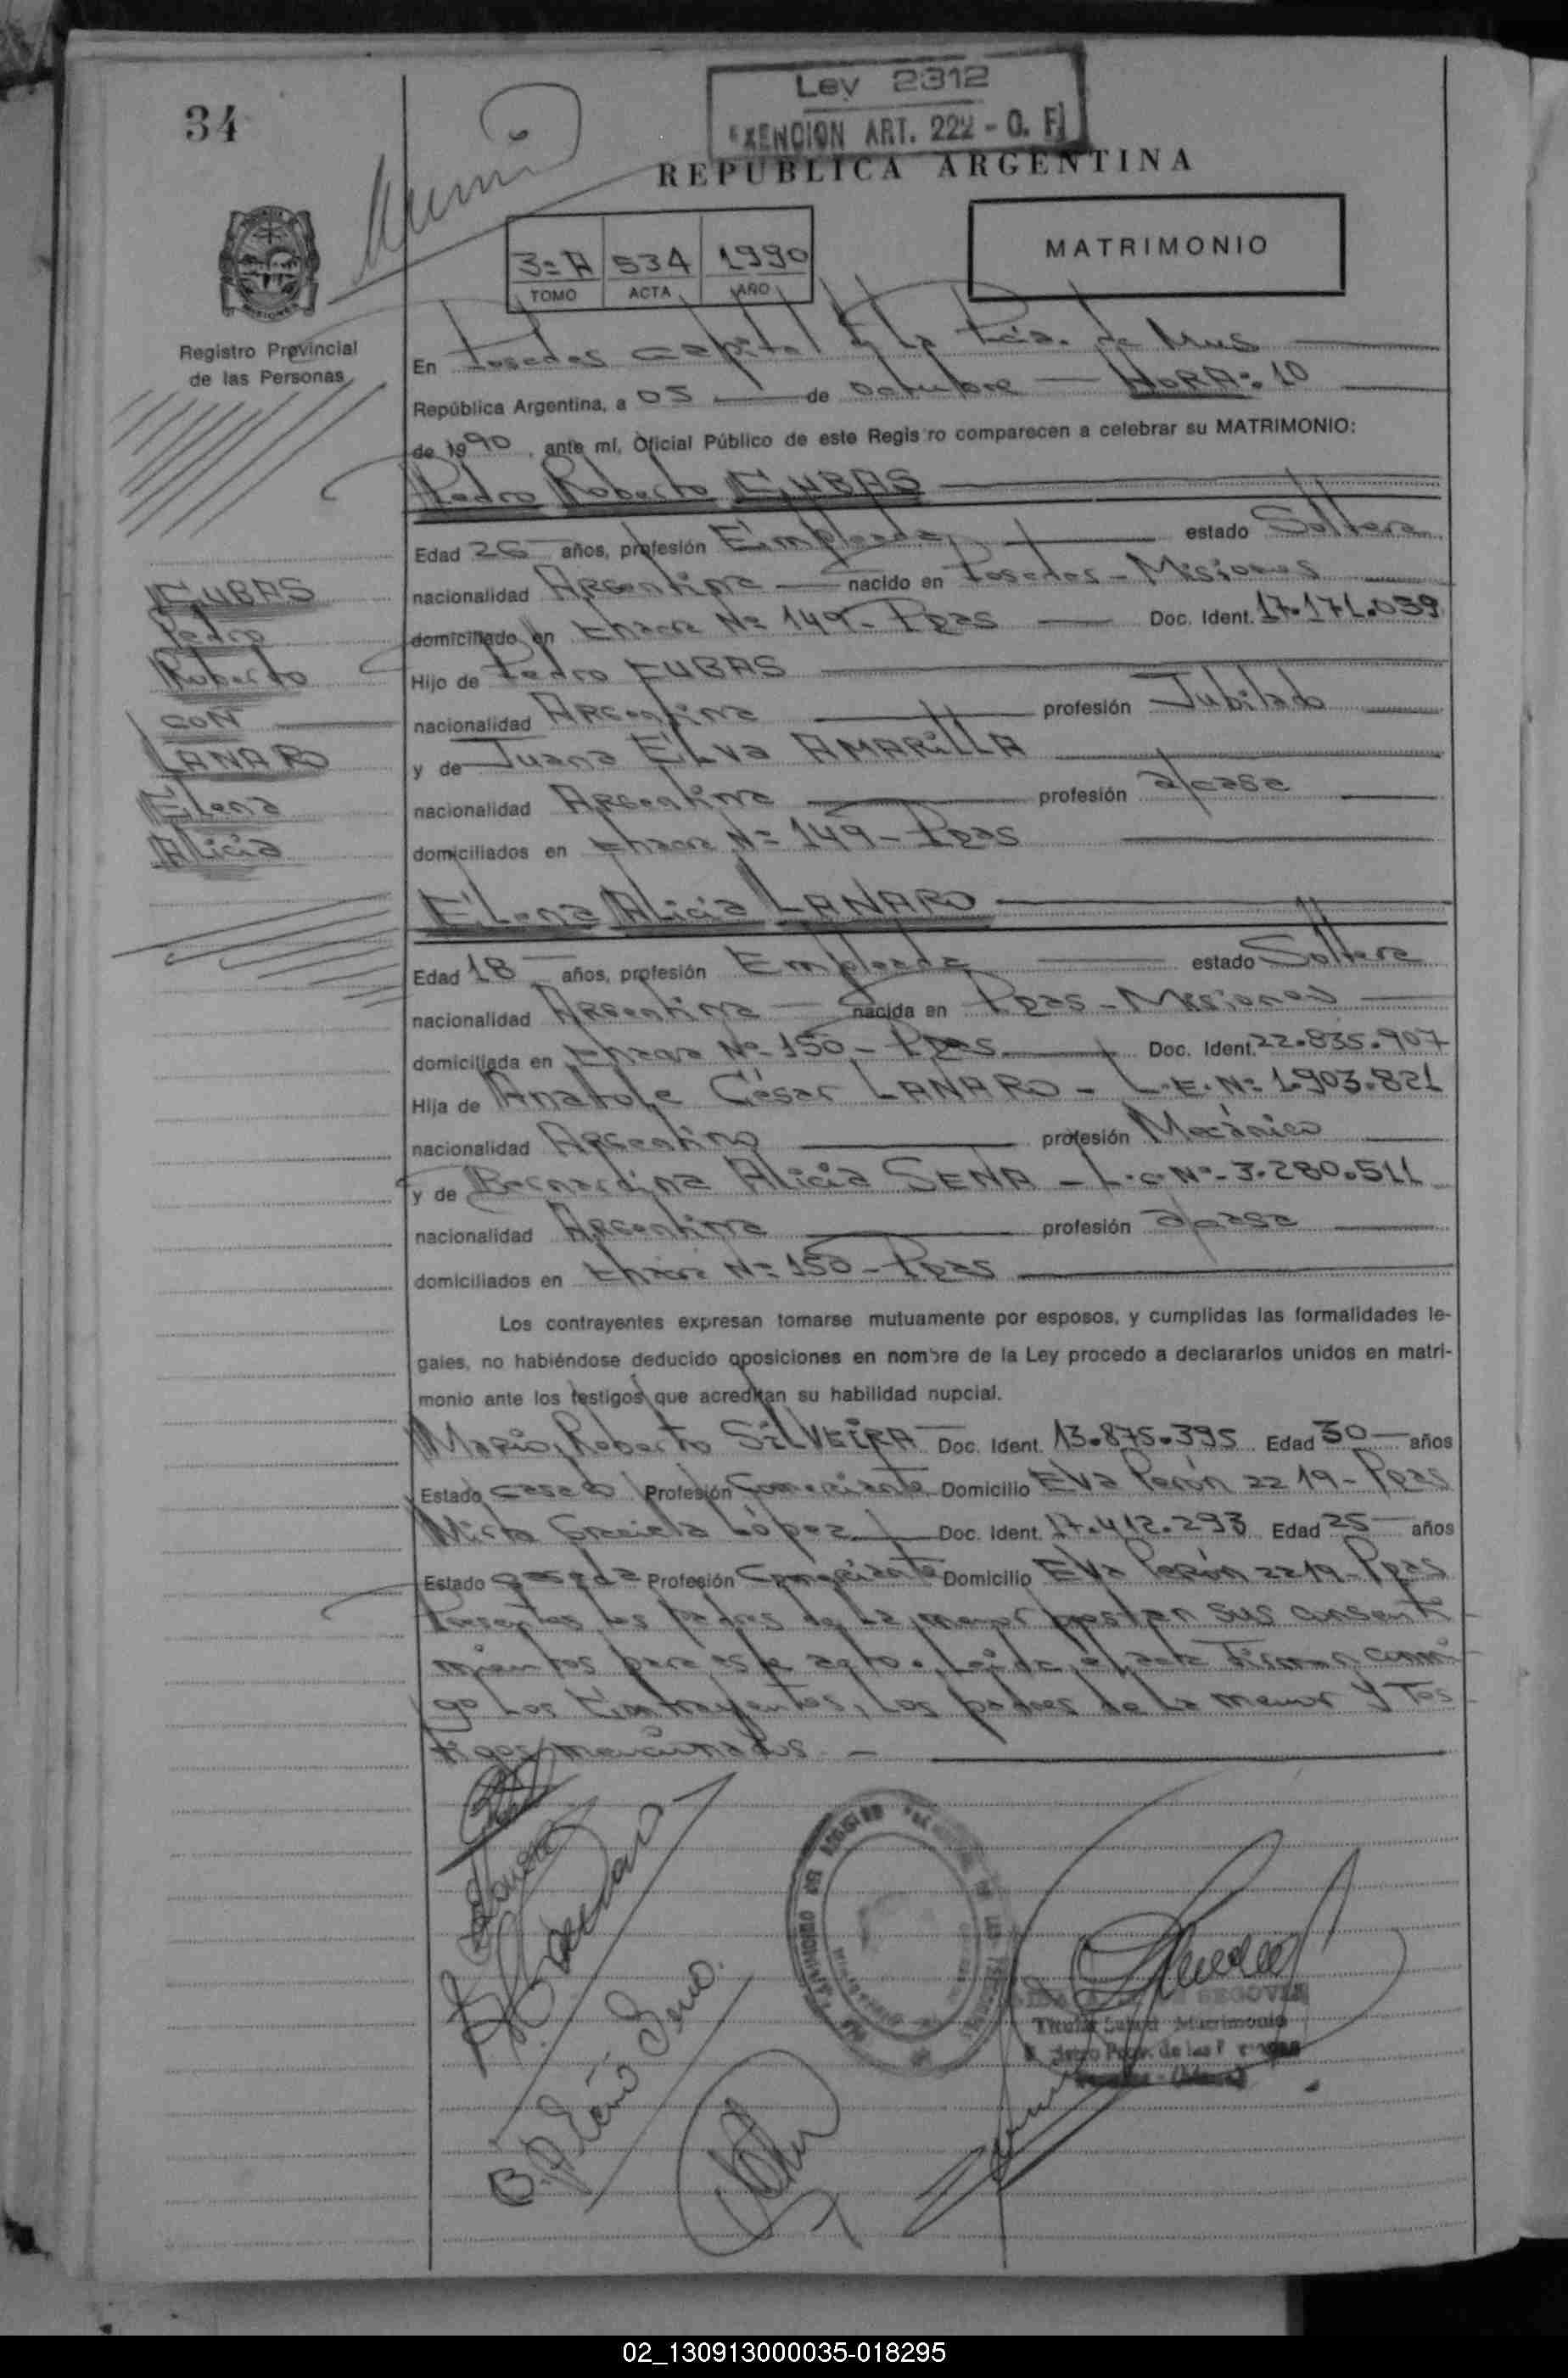 Ley 2312
EXENCION ART. 222 - O. F.
34
REPUBLICA ARGENTINA
3=A 534 1990
TOMO ACTA AÑO
MATRIMONIO
Registro Provincial
de las Personas
En Posadas Capital de la Pcia. de Mnes
República Argentina, a 05 de octubre HORA: 10
de 1990, ante mí, Oficial Público de este Registro comparecen a celebrar su MATRIMONIO:
Pedro Roberto CUBAS
Edad 26 años, profesión Empleado estado Soltero
nacionalidad Argentina nacido en Posadas - Misiones
domiciliado en Chacra Nº 149 - Pdas Doc. Ident. 17.171.039
Hijo de Pedro CUBAS
nacionalidad Argentina profesión Jubilado
y de Juana ELva AMARILLA
nacionalidad Argentina profesión a/casa
domiciliados en Chacra Nº 149 - Pdas
CUBAS
Pedro
Roberto
CON
LANARO
Elena
Alicia
Elena Alicia LANARO
Edad 18 años, profesión Empleada estado Soltera
nacionalidad Argentina nacida en Pdas - Misiones
domiciliada en Chacra Nº 150 - Pdas Doc. Ident. 22.835.907
Hija de Anatole César LANARO - L.E. Nº 1.903.821
nacionalidad Argentino profesión Mecánico
y de Bernardina Alicia SENA - L.C. Nº - 3.280.511
nacionalidad Argentina profesión a/casa
domiciliados en Chacra Nº 150 - Pdas
Los contrayentes expresan tomarse mutuamente por esposos, y cumplidas las formalidades le-
gales, no habiéndose deducido oposiciones en nombre de la Ley procedo a declararlos unidos en matri-
monio ante los testigos que acreditan su habilidad nupcial.
Mario Roberto SILVEIRA Doc. Ident. 13.875.395 Edad 30 años
Estado casado Profesión Comerciante Domicilio Eva Perón 2219 - Pdas
Mirta Graciela López Doc. Ident. 17.412.293 Edad 25 años
Estado casada Profesión Comerciante Domicilio Eva Perón 2219 - Pdas
Presentes los padres de la menor prestan sus consenti-
mientos para este acto. Leída el acta Firman conmi-
go Los Contrayentes, Los padres de la menor y Tes-
tigos mencionados. -
SEGOVIA
Titular Matrimonio
02_130913000035-018295